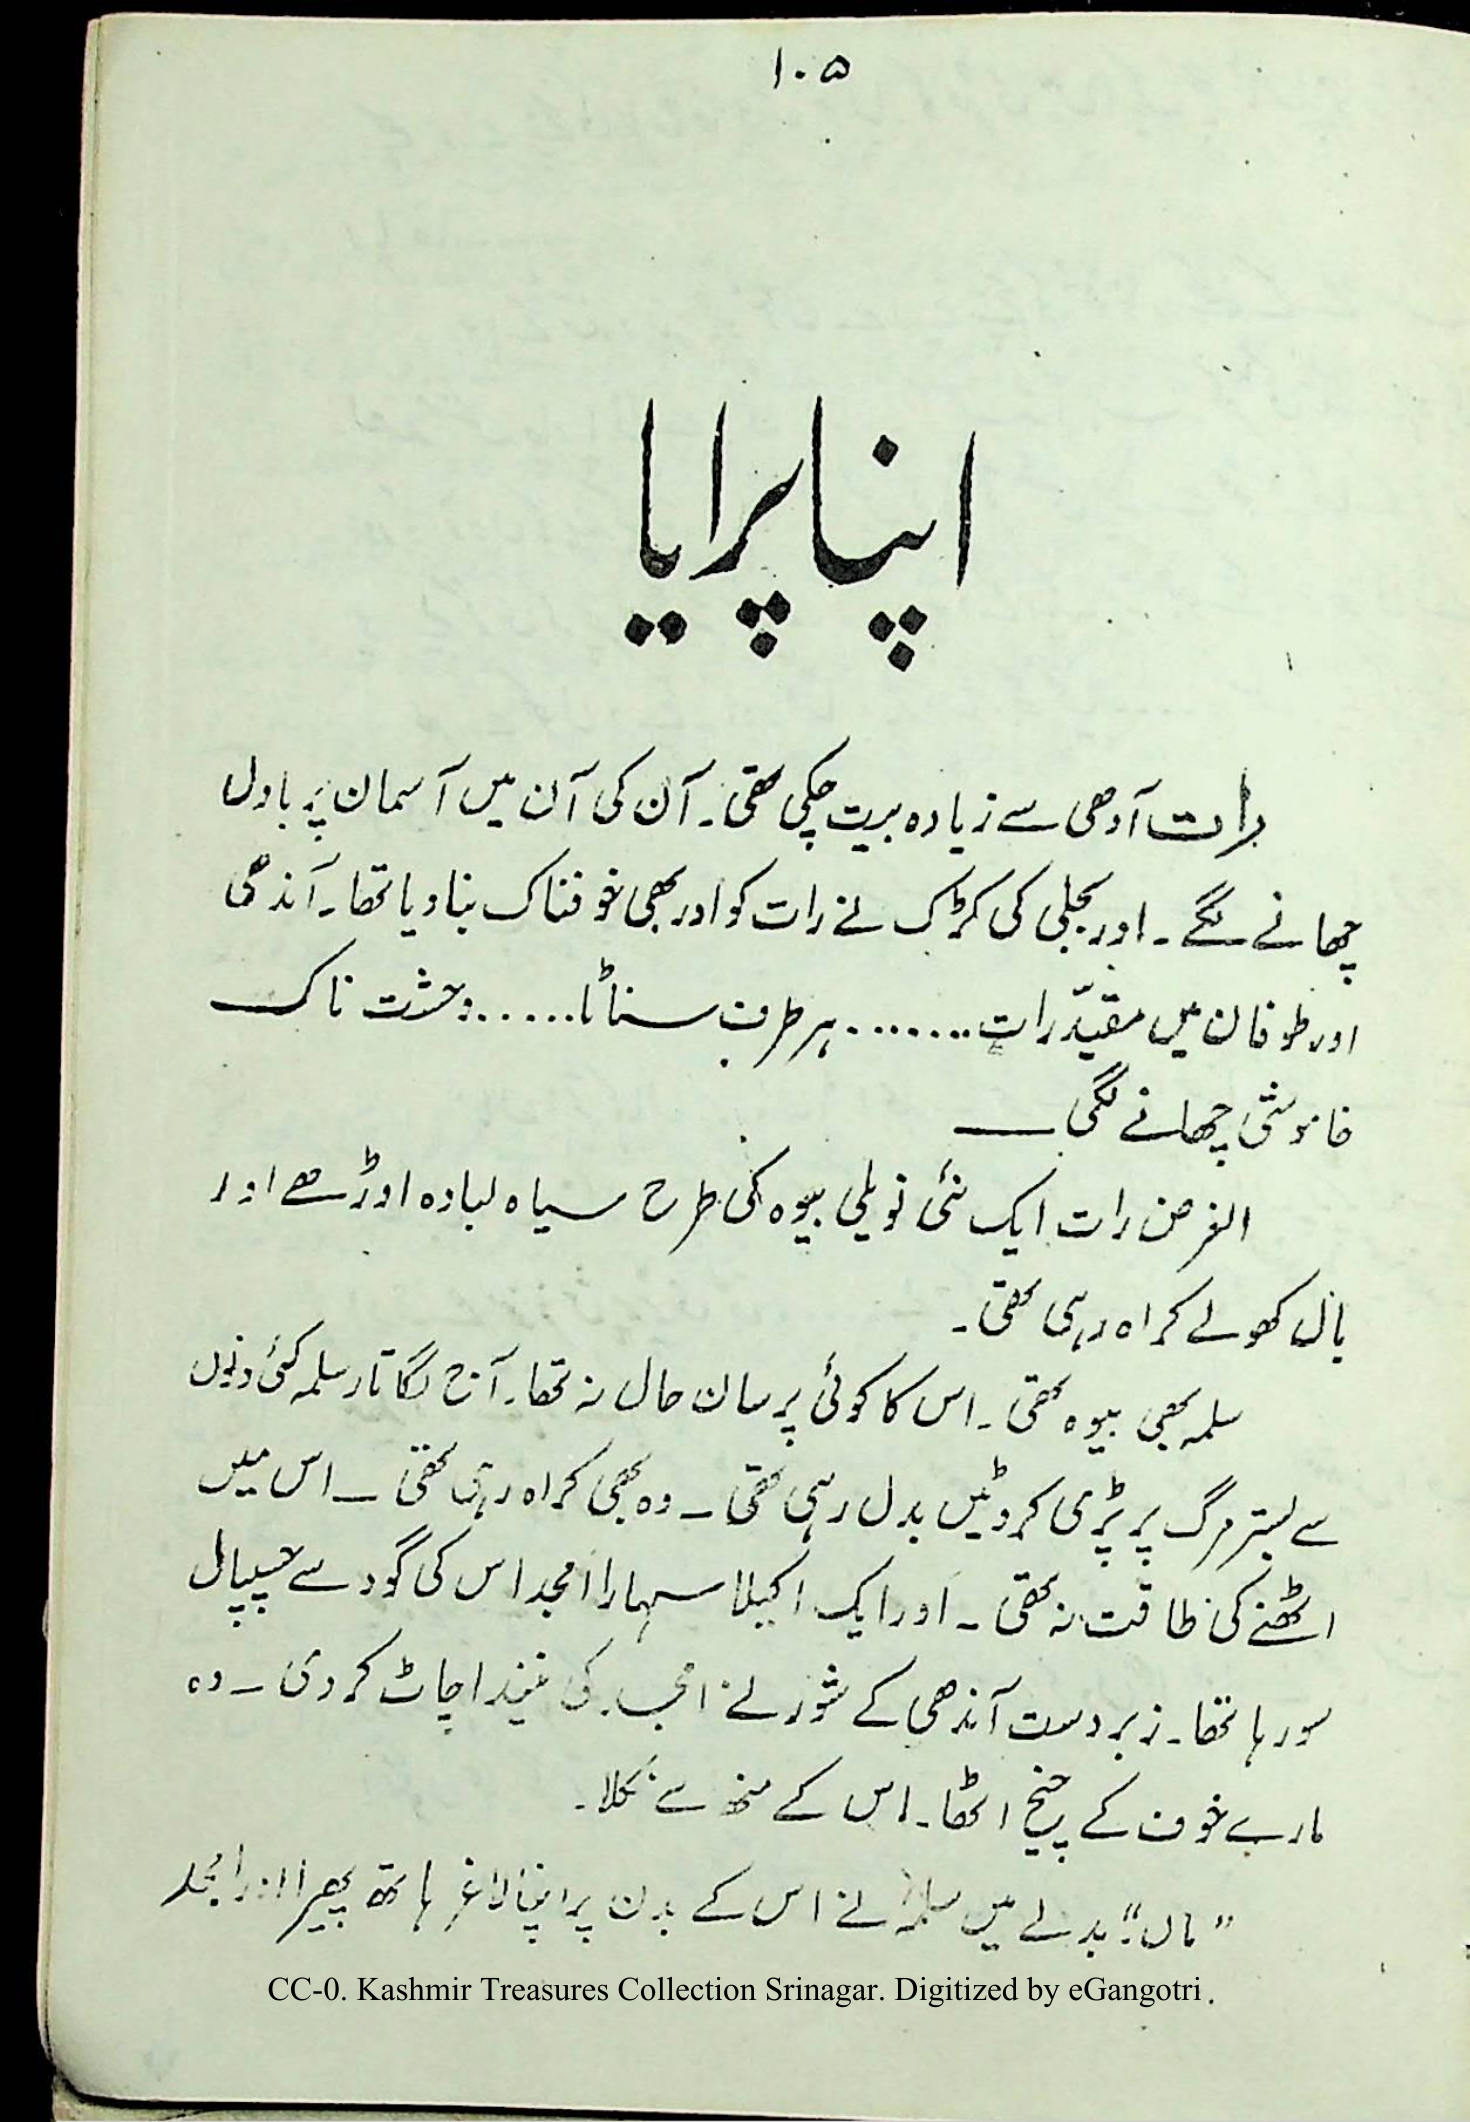 ۱۰۵
اپنا پرایا
رات آدھی سے زیادہ بیت چکی تھی۔ آن کی آن میں آسمان پر بادل
چھانے لگے۔ اور بجلی کی کڑک نے رات کو اور بھی خوفناک بنا دیا تھا۔ آندھی
اور طوفان میں مقیّد رات ........ ہر طرف سناٹا ...... وحشت ناک
خاموشی چھانے لگی ــــ
الغرض رات ایک نئی نویلی بیوہ کی طرح سیاہ لبادہ اوڑھے اور
بال کھولے کراہ رہی تھی۔
سلمہ بھی بیوہ تھی۔ اس کا کوئی پرسان حال نہ تھا۔ آج لگاتار سلمہ کئی دنوں
سے بستر مرگ پر پڑی کروٹیں بدل رہی تھی ۔ وہ بھی کراہ رہی تھی ۔ اس میں
اٹھنے کی طاقت نہ تھی ۔ اور ایک اکیلا سہارا امجد اس کی گود سے چپپال
سو رہا تھا۔ زبردست آندھی کے شور نے امجد کی نیند اچاٹ کر دی ۔ وہ
مارے خوف کے چیخ اٹھا۔ اس کے منھ سے نکلا۔
"ماں"! بدلے میں سلمہ نے اس کے بدن پر اپنا لاغر ہاتھ پھیرا اور امجد
CC-0. Kashmir Treasures Collection Srinagar. Digitized by eGangotri